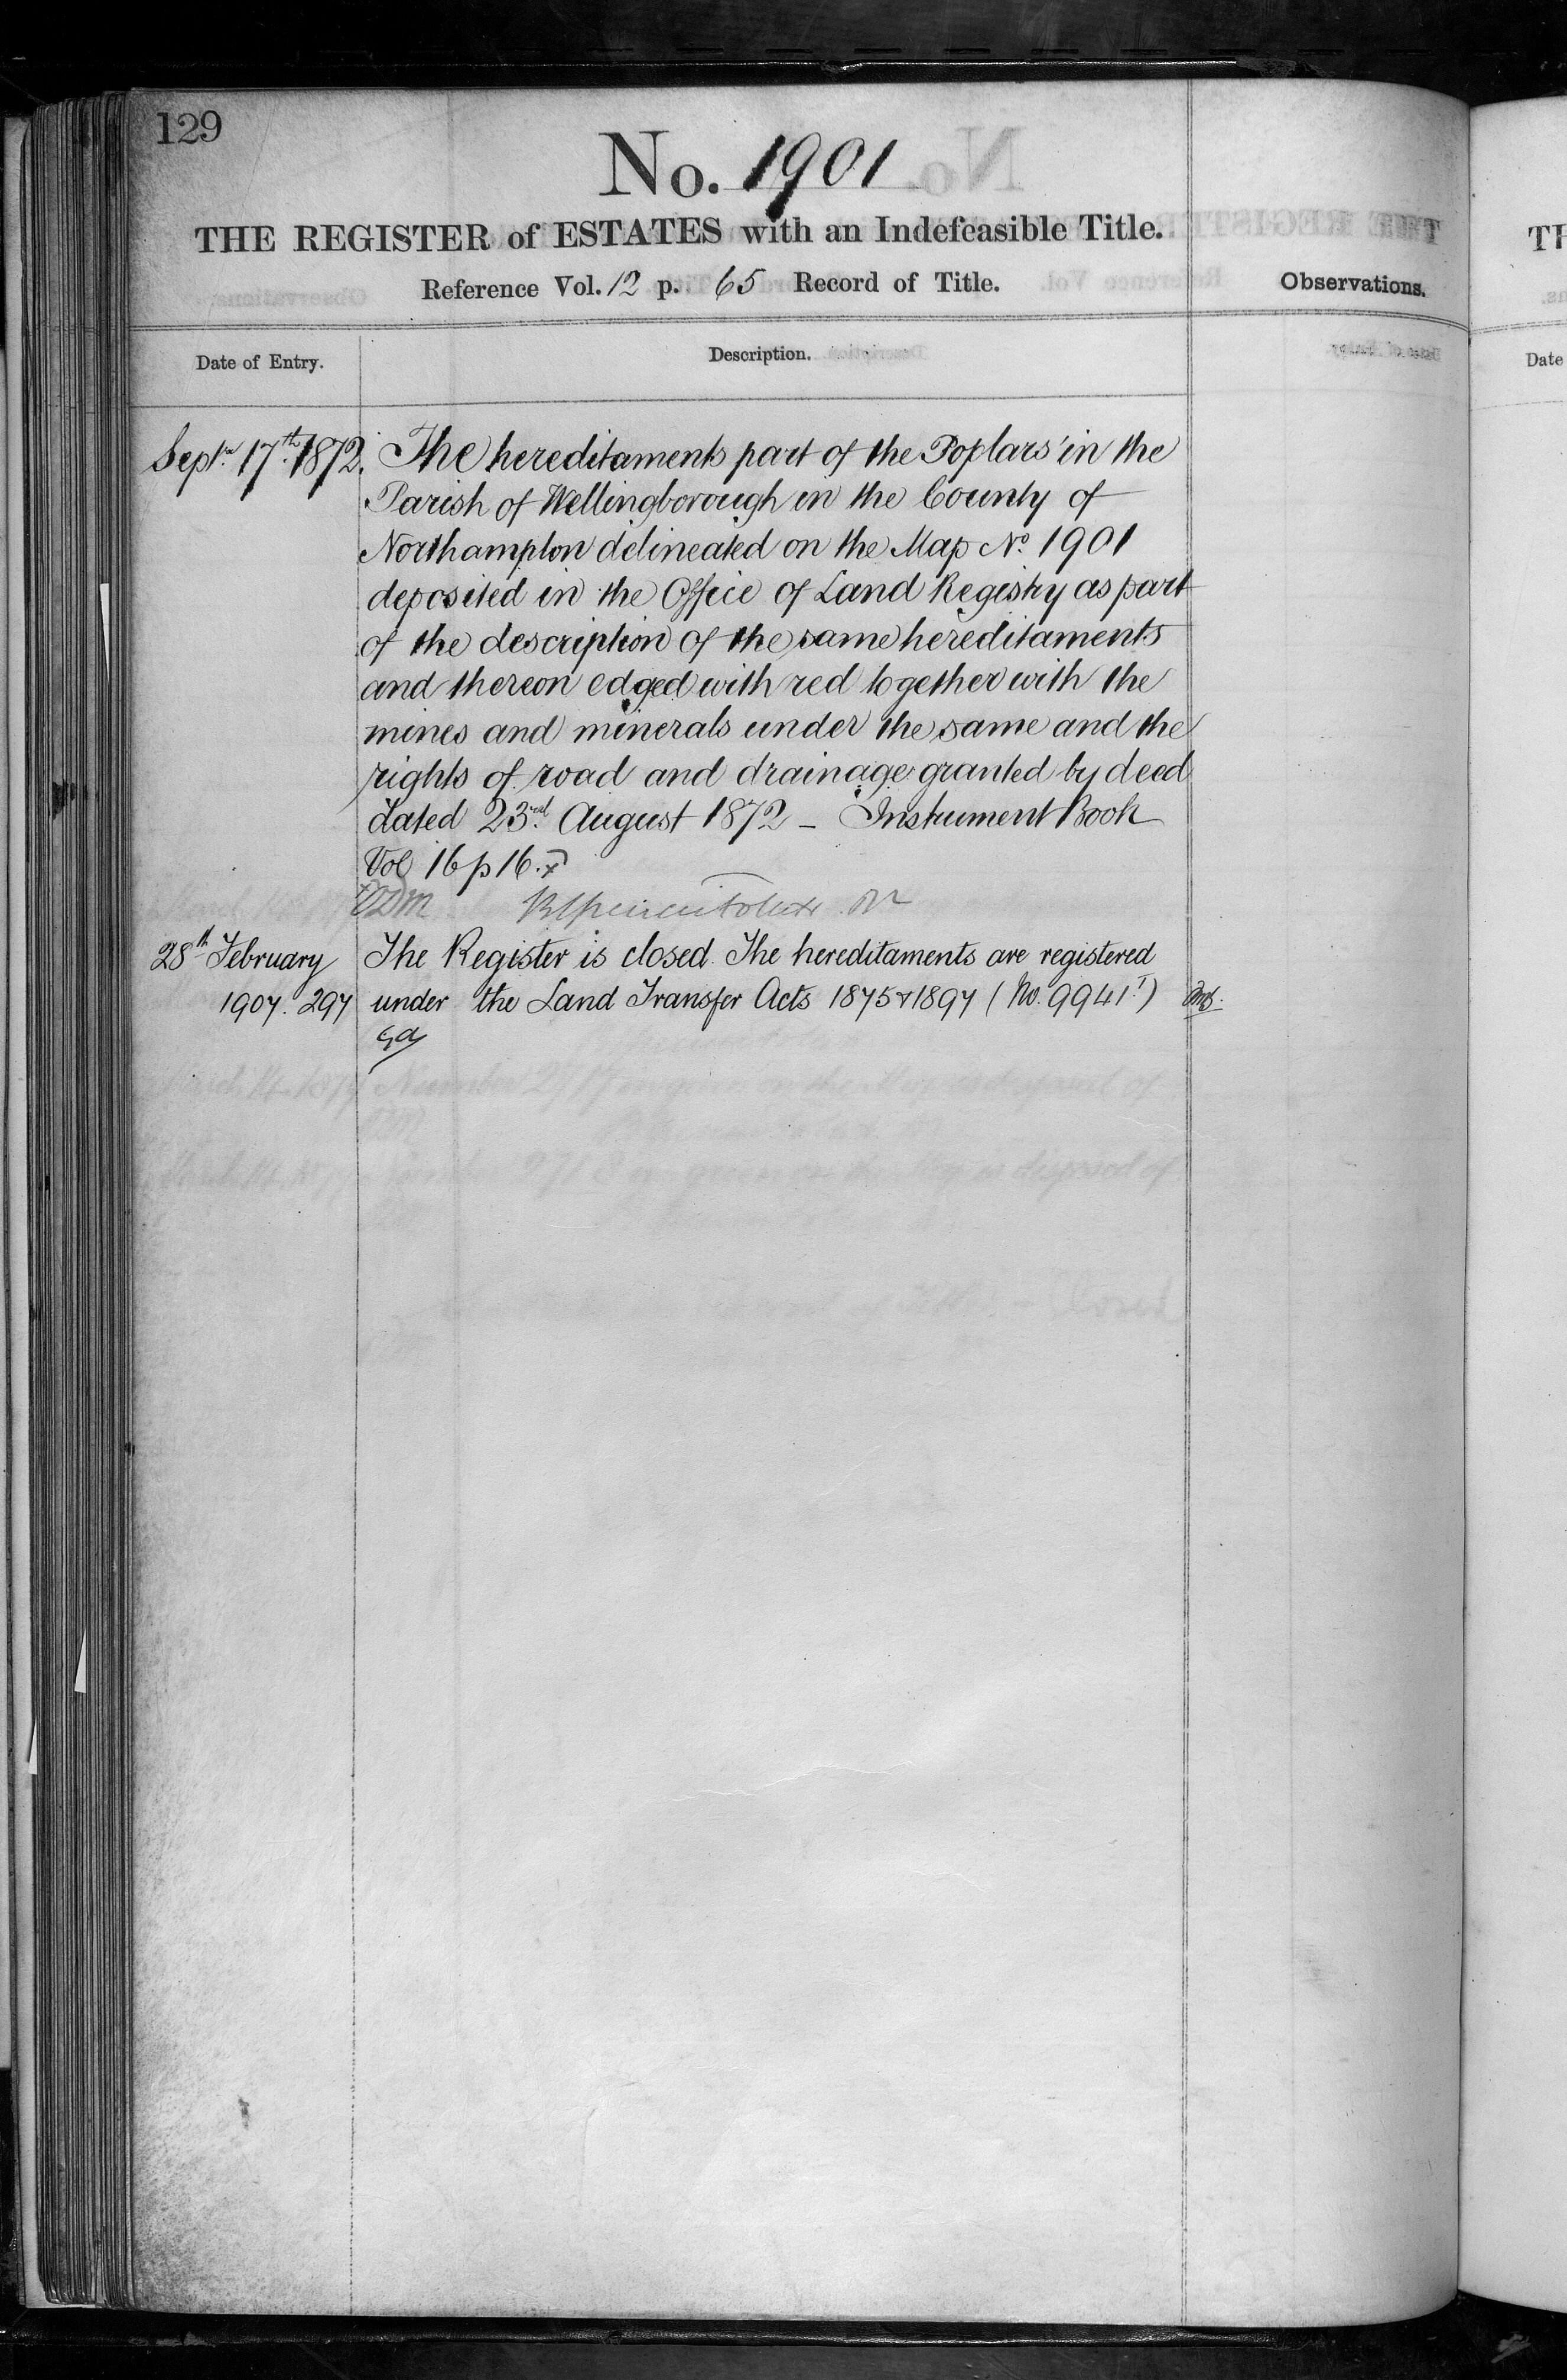 129
No. 1901
THE REGISTER of ESTATES with an Indefeasible Title.
Reference Vol. 12 p. 65 Record of Title.
Observations.
Date of Entry.
Description.
Septr. 17th. 1872. The hereditaments part of the 'Poplars' in the
Parish of Wellingborough in the County of
Northampton delineated on the Map No. 1901
deposited in the Office of Land Registry as part
of the description of the same hereditaments
and thereon edged with red together with the
mines and minerals under the same and the
rights of road and drainage granted by deed
dated 23rd. August 1872 – Instrument Book
Vol 16 p 16.
28th February The Register is closed. The hereditaments are registered
1907. 297 under the Land Transfer Acts 1875 & 1897 (No. 9941)
Date